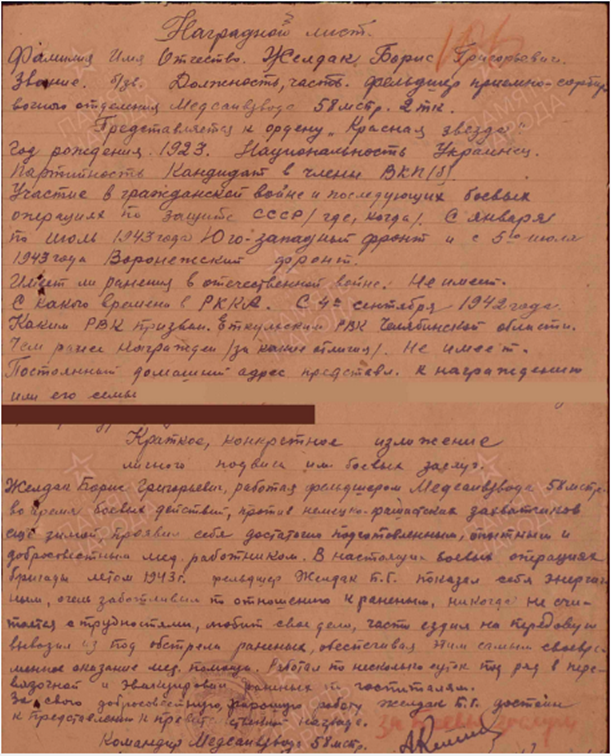 Наградной лист.
Фамилия Имя Отчество. Желдак, Борис Григорьевич.
Звание. б/зв. Должность, часть. фельдшер приемно-сортир
вочного отделения Медсанвзвода 58 мстр. 2 тк.
Представляется к ордену „Красная звезда"
Год рождения. 1923. Национальность Украинец.
Партийность Кандидат в члены ВКП/б/
Участие в гражданской войне и последующих боевых
операциях по защите СССР /где, когда/. С января
по июль 1943 года Юго-западный фронт и с 5го июля
1943 года Воронежский фронт.
Имеет ли ранения в отечественной войне. Не имеет.
С какого времени в РККА. С 4го сентября 1942 года.
Каким РВК призван. Еткульским РВК Челябинской области.
Чем ранее награжден /за какие отличия/. Не имеет.
Постоянный домашний адрес представл. к награждению
или его семьи
Краткое, конкретное изложение
личного подвига или боевых заслуг.
Желдак Борис Григорьевич, работая фельдшером Медсанвзвода 58 мстр.
во время боевых действий, против немецко-фашистских захватчиков
ещё зимой, проявил себя достаточно подготовленным, опытным и
добросовестным мед. работником. В настоящих боевых операциях
бригады летом 1943 г. фельдшер Желдак Б.Г. показал себя энергич
ным, очень заботливым по отношению к раненым, никогда не счи-
тается с трудностями, любит свое дело, часто ездил на передовую
вывозил из под обстрела раненых, обеспечивая этим самым своевре-
менное оказание мед. помощи. Работал по несколько суток под ряд в пере-
вязочной и эвакуировал раненых по госпиталям.
За свою добросовестную, хорошую работу Желдак Б.Г. достоин
к представлению к правительственной награде.
за боевые заслуги
Командир Медсанвзвода 58 мстр.
ПАМЯТЬ НАРОДА